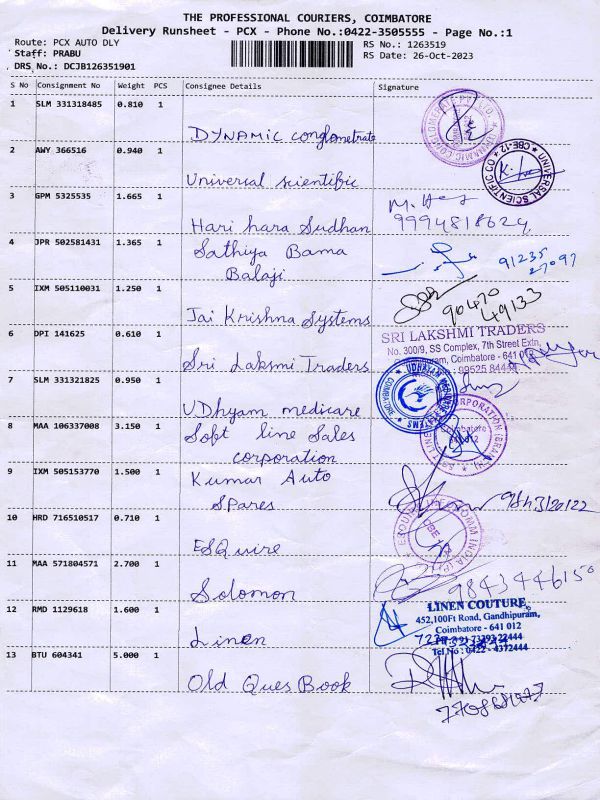 THE PROFESSIONAL COURIERS, COIMBATORE
Delivery Runsheet - PCX - Phone No.:0422-3505555 - Page No.:1
Route: PCX AUTO DLY
RS No.: 1263519
Staff: PRABU
RS Date: 26-Oct-2023
DRS No.: DCJB126351901
S No Consignment No Weight PCS Consignee Details Signature
1 SLM 331318485 0.810 1
DYNAMIC conglometrate
2 AWY 366516 0.940 1
Universal scientific
UNIVERSAL SCIENTIFIC CO CBE-12
3 GPM 5325535 1.665 1
Hari hara Sudhan
9994818624
4 JPR 502581431 1.365 1
Sathiya Bama
Balaji
91235
27097
5 IXM 505110031 1.250 1
Jai Krishna Systems
90470
49133
6 DPI 141625 0.610 1
Sri Laksmi Traders
SRI LAKSHMI TRADERS
No. 300/9, SS Complex, 7th Street Extn,
Coimbatore - 641 012
7 SLM 331321825 0.950 1
UDhyam medicare
8 MAA 106337008 3.150 1
Soft line Sales
corporation
Coimbatore
9 IXM 505153770 1.500 1
Kumar Auto
Spares
10 HRD 716510517 0.710 1
ESQuire
11 MAA 571804571 2.700 1
Solomon
9843446150
12 RMD 1129618 1.600 1
Linen
LINEN COUTURE,
452,100Ft Road, Gandhipuram,
Coimbatore - 641 012
Tel No : 0422 - 4372444
13 BTU 604341 5.000 1
Old Ques Book